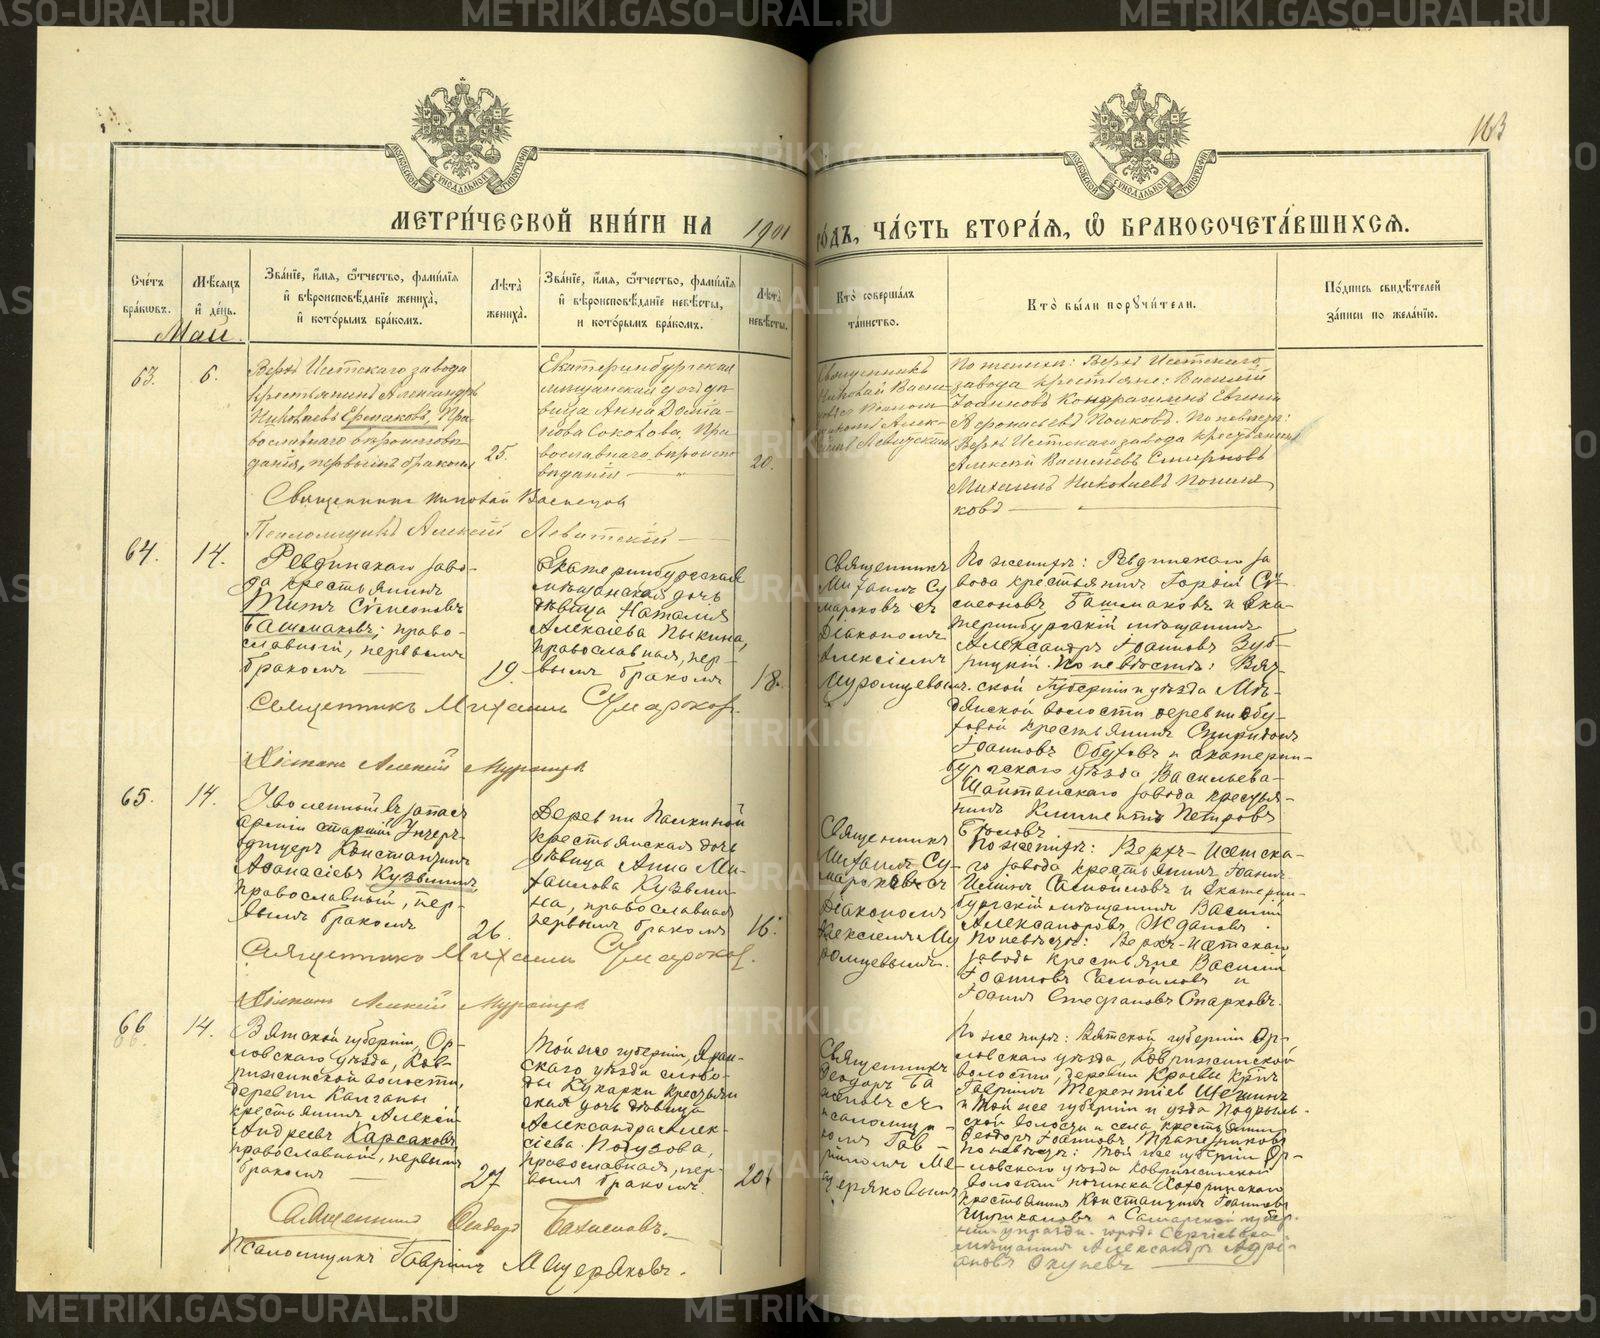 163
МОСКОВСКОЙ СѴНОДАЛЬНОЙ ТИПОГРАФІИ
МОСКОВСКОЙ СѴНОДАЛЬНОЙ ТИПОГРАФІИ
МЕТРИ́ЧЕСКОЙ КНИ́ГИ НА 1901 ГО́ДЪ, ЧА́СТЬ ВТОРА́Я, Ѿ БРАКОСОЧЕТА́ВШИХСЯ.
Сче́тъ
бра́кѡвъ.
Мѣ́сяцъ
и҆ де́нь.
Зва́нїе, и҆́мя, ѻ҆́тчество, фами́лїя
и҆ вѣроисповѣ́данїе жениха̀,
и҆ кото́рымъ бра́комъ.
Лѣ́та
жениха̀.
Зва́нїе, и҆́мя, ѻ҆́тчество, фами́лїя
и҆ вѣроисповѣ́данїе невѣ́сты,
и кото́рымъ бра́комъ.
Лѣ́та
невѣ́сты.
Кто̀ соверша́лъ
та́инство.
Кто̀ бы́ли порꙋчи́тели.
По́дпись свидѣ́телей
за́писи по жела́нїю.
Май.
63.
6.
Верхъ Исетскаго завода
крестьянинъ Александръ
Николаевъ Ермаковъ, Пра-
вославнаго вѣроисповѣ-
данія, первымъ бракомъ
25.
Екатеринбургская
мѣщанская дочь дѣ-
вица Анна Доміа-
нова Соколова, Пра-
вославнаго вѣроиспо
вѣданія —
20.
Священникъ
Николай Васне-
цовъ съ Псалом-
щикомъ Алек-
Левитскимъ
По женихѣ: Верхъ Исетскаго
завода крестьяне: Василій
Іоанновъ Кондрашинъ Евгеній
Аѳонасьевъ Попковъ. По невѣстѣ:
Верхъ Исетскаго завода крестьянинъ
Алексѣй Васильевъ Смирновъ
Михаилъ Николаевъ
ковъ —
Священникъ Николай Васнецовъ
Псаломщикъ Алексѣй Левитскій —
64.
14.
Ревдинскаго заво-
да крестьянинъ
Титъ Симеоновъ
Башмаковъ, право-
славный, первымъ
бракомъ —
19.
Екатеринбургская
мѣщанская дочь
дѣвица Наталія
Алексіева Пыкина,
православная, пер-
вымъ бракомъ
18.
Священникъ
Михаилъ Су
мароковъ съ
діакономъ
Алексіемъ
Муромцевымъ.
По женихѣ: Ревдинскаго за
вода крестьянинъ Гордій Си-
меоновъ Башмаковъ и Ека-
теринбургскій мѣщанинъ
Александръ Іоанновъ Зуб-
рицкій. По невѣстѣ: Вят
ской губерніи и уѣзда Мѣ-
дянской волости деревни Обу-
ховой крестьянинъ Спиридонъ
Іоанновъ Обуховъ и Екатерин-
бургскаго уѣзда Васильева-
Шайтанскаго завода крестья-
нинъ Климентъ Петровъ
Священникъ Михаилъ Сумароковъ.
Діаконъ Алексѣй Муромцевъ
65.
14.
Уволенный въ запасъ
арміи старшій Унтеръ-
офицеръ Константинъ
Аѳанасіевъ Кузьминъ,
православный, пер-
вымъ бракомъ
26.
Деревни Палкиной
крестьянская дочь
дѣвица Анна Ми-
хаилова Кузьми-
на, православная
первымъ бракомъ
16.
Священникъ
Михаилъ Су-
мароковъ съ
діакономъ
Алексіемъ Му
ромцевымъ.
По женихѣ: Верхъ-Исетска-
го завода крестьянинъ Іоаннъ
Самойловъ и Екатерин-
бургскій мѣщанинъ Василій
Александровъ Ждановъ.
По невѣстѣ: Верхъ-Исетскаго
завода крестьяне Василій
Іоанновъ Самойловъ и
Іоаннъ Стефановъ Старковъ.
Священникъ Михаилъ Сумароковъ.
Діаконъ Алексѣй Муромцевъ
66
66.
14.
Вятской губерніи, Ор-
ловскаго уѣзда, Ков-
рижинской волости,
деревни Калганы
крестьянинъ Алексій
Андреевъ Карсаковъ
православный, первымъ
бракомъ —
27
Той же губерніи, Яран-
скаго уѣзда слобо-
ды Кукарки крестьян
ская дочь дѣвица
Александра Алек-
сіева Погузова,
православная, пер-
вымъ бракомъ.
20.
Священникъ
Ѳеодоръ Ба
съ
псаломщи-
комъ Гав-
ріиломъ Ме-
щеряковымъ
По женихѣ: Вятской губерніи Ор-
ловскаго уѣзда, Коврижинской
волости, деревни Краевы
Гавріилъ Терентіевъ
и той же губерніи и уѣзда Подрель-
ской волости и села крестьянинъ
Ѳеодоръ Іоанновъ Трапезниковъ
По невѣстѣ: той же губерніи Ор-
ловскаго уѣзда Коврижинской
волости починка
крестьянинъ Константинъ Іоанновъ
и Самарской губер-
ніи города Сергіевска
мѣщанинъ Александръ Адрі-
ановъ Окуневъ —
Священникъ Ѳеодоръ
Псаломщикъ Гавріилъ Мещеряковъ.